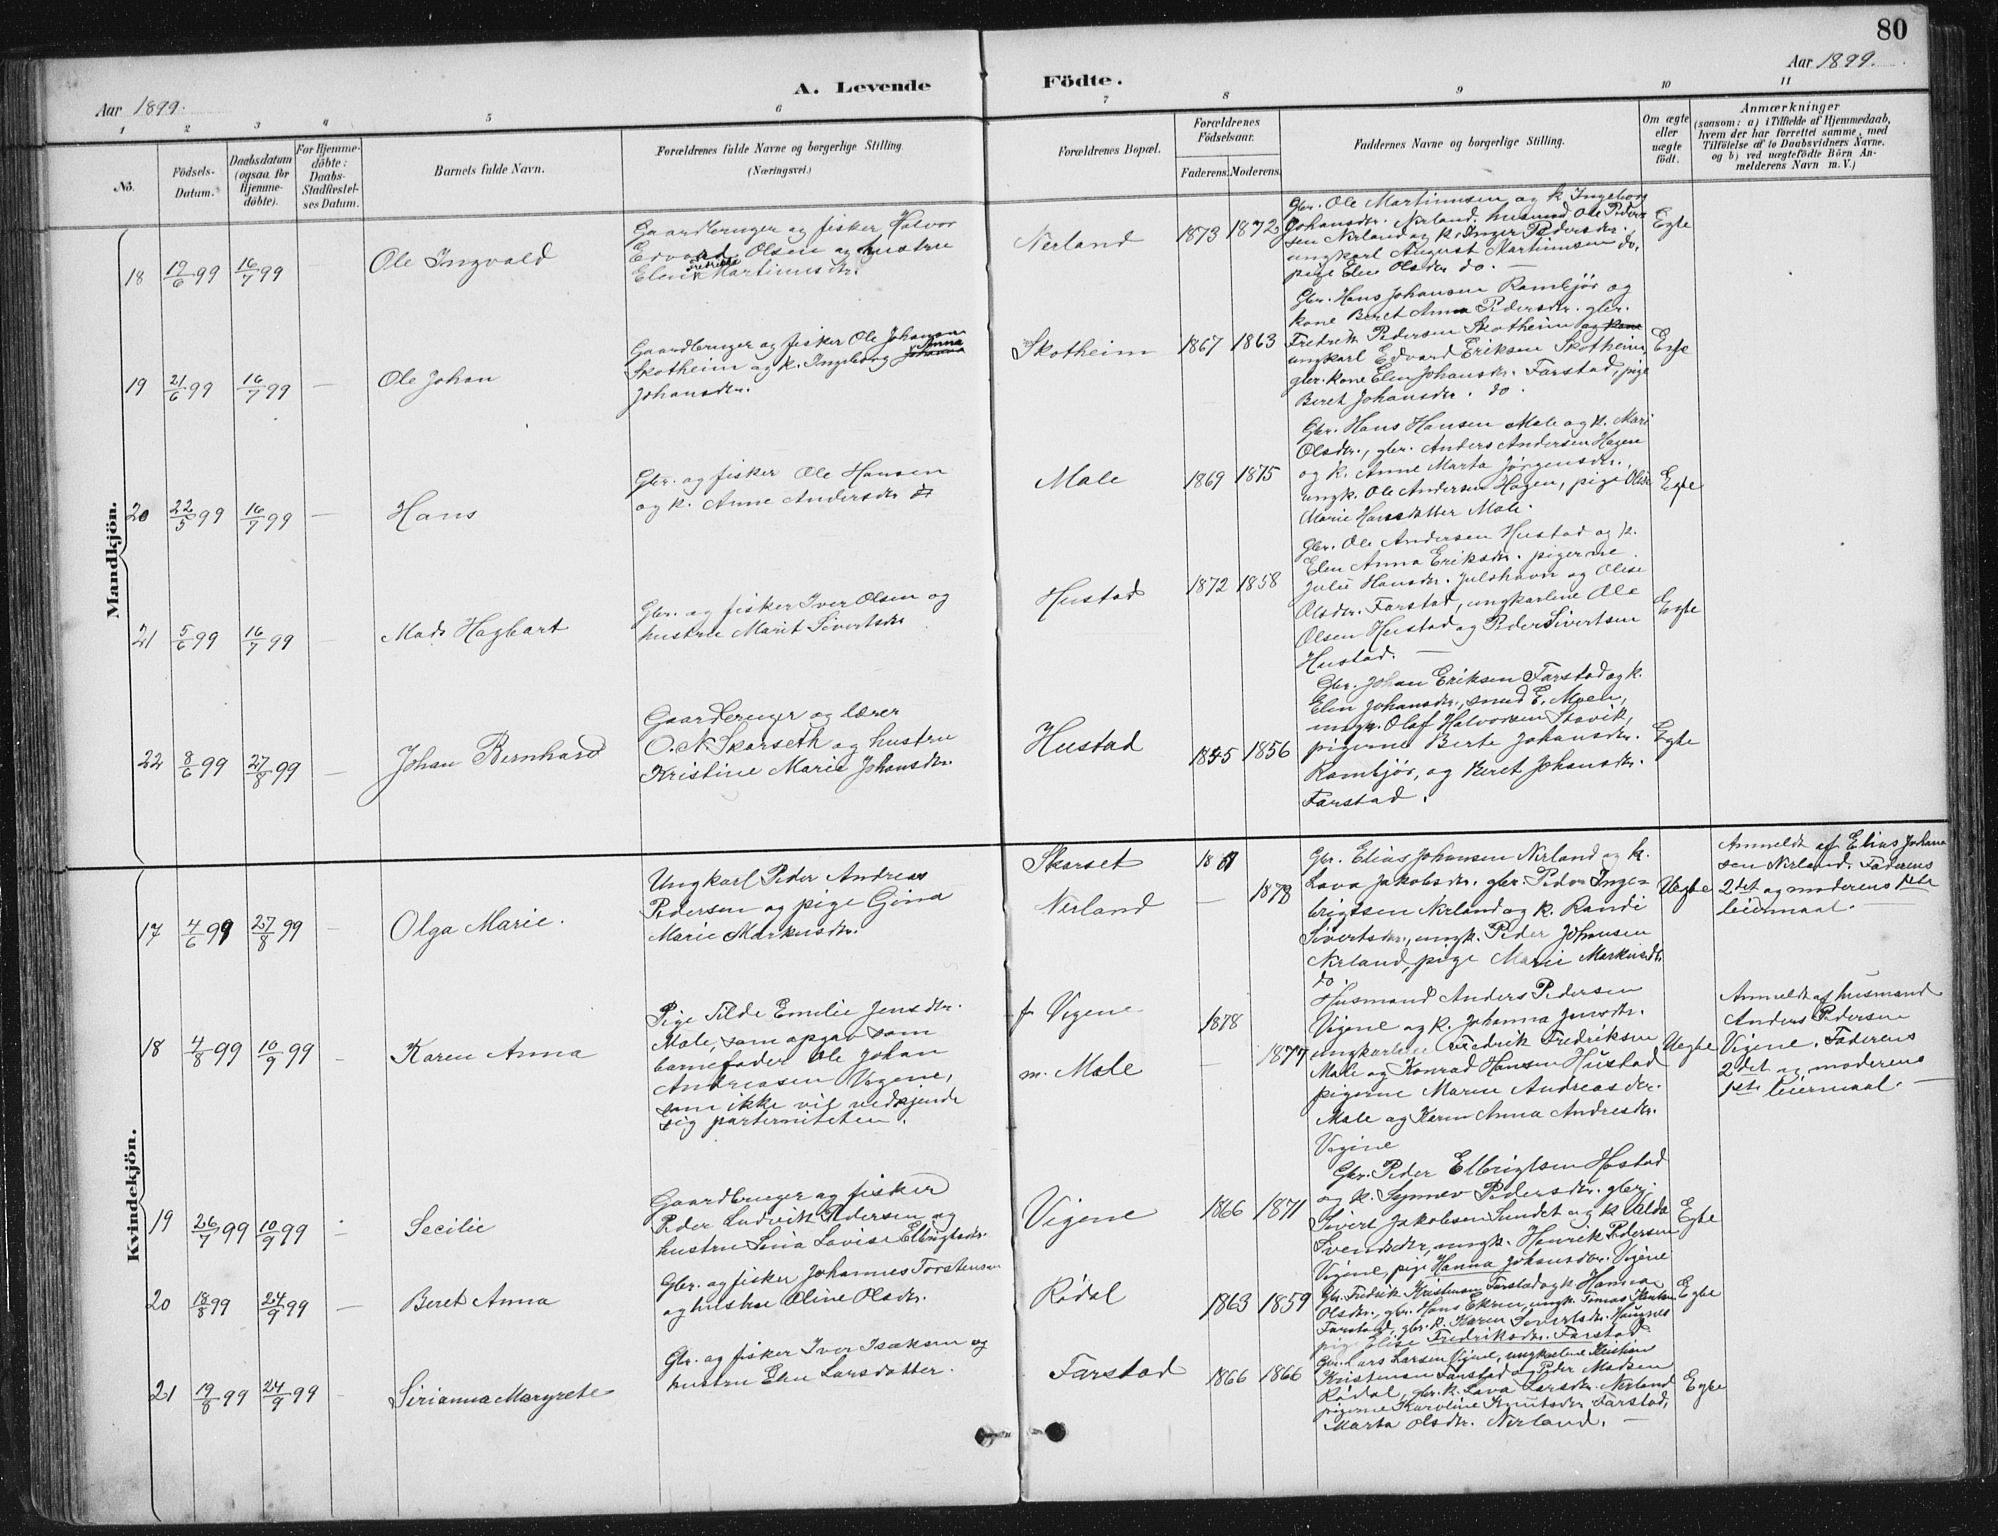 80
Aar 1899.
A. Levende
Födte.
Aar 1899.
1 2 3 4 5 6 7 8 9 10 11
No.
Födsels-
Datum.
Daabsdatum
(ogsaa for
Hjemme-
döbte).
For Hjemme-
döbte:
Daabs-
Stadfæstel-
ses Datum.
Barnets fulde Navn.
Forældrenes fulde Navne og borgerlige Stilling
(Næringsvei.)
Forældrenes Bopæl.
Forældrenes
Födselsaar.
Faderens.
Moderens.
Faddernes Navne og borgerlige Stilling.
Om ægte
eller
uægte
födt.
Anmærkninger
(saasom: a) i Tilfælde af Hjemmedaab,
hvem der har forrettet samme, med
Tilföielse af to Daabsvidners Navne,
og b) ved uægtefödte Börn An-
melderens Navn m. V.)
Mandkjön.
18 19/6 99 16/7 99
Ole Ingvald
Gaardbruger og fisker Halvor
Edvard Olsen og hustru
Elen Fredrikke Martinusdtr.
Nerland
1873 1872
Gbr. Ole Martinusen og k. Ingeborg
Johansdtr. Nerland, husmand Ole Peder
sen Nerland og k. Inger Pedersdtr.,
ungkarl August Martinusen do,
pige Elen Olsdtr do. —
Egte
19 21/6 99 16/7 99 —
Ole Johan
Gaardbruger og fisker Ole Johansen
Skotheim og k. Ingeborg Johanna Anna
Johansdtr.
Skotheim
1867 1863
Gbr. Hans Johansen Rambjør og
kone Beret Anna Pedersdtr. gbr.
Fredrik Pedersen Skotheim og kone
ungkarl Edvard Eriksen Skotheim,
gbr. kone Elen Johansdtr. Farstad, pige
Beret Johansdtr. do.
Egte
20 22/5 99 16/7 99 —
Hans
Gbr. og fisker Ole Hansen
og k. Anne Andersdtr
Male
1869 1875
Gbr. Hans Hansen Male og k. Mari
Olsdtr., gbr. Anders Andersen Hagen
og k. Anne Marta Jørgensdtr.,
ungk. Ole Andersen Hagen, pige Olise
Marie Hansdatter Male.
Egte
21 5/6 99 16/7 99 —
Mads Hagbart
Gbr. og fisker Iver Olsen og
hustru Marit Sivertsdtr
Hustad
1872 1858
Gbr. Ole Andersen Hustad og k.
Elen Anna Eriksdtr. pigerne
Julie Hansdtr. Julshavn og Olise
Olsdtr. Farstad, ungkarlene Ole
Olsen Hustad og Peder Sivertsen
Hustad. —
Egte
22 8/6 99 27/8 99 —
Johan Bernhard
Gaardbruger og lærer
O. N. Skarseth og hustru
Kristine Marie Johansdtr.
Hustad
1845 1856
Gbr. Johan Eriksen Farstad og k.
Elen Johansdtr., smed E. Moen,
ungk. Olaf Halvorsen Stavik,
pigerne Berte Johansdtr.
Rambjør, og Beret Johansdtr.
Farstad.
Egte
Kvindekjön.
17 4/6 99 27/8 99 —
Olga Marie.
Ungkarl Peder Andreas
Pedersen og pige Gina
Marie Markusdtr.
Skarset
Nerland
—
1878
Gbr. Elias Johansen Nerland og k.
Lava Jakobsdtr. gbr. Peder Inge-
brigtsen Nerland og k. Randi
Sivertsdtr., ungk. Peder Johansen
Nerland, pige Marie Markusdtr.
do.
Uegte
Anmeldt af Elias Johan
sen Nerland. Faderens
2det og moderens 1ste
leiermaal. —
18 4/8 99 10/9 99 —
Karen Anna
Pige Tilde Emilie Jensdtr.
Male, som opgav som
barnefader Ole Johan
Andreasen Vigene,
som ikke vil vedkjende
sig paterniteten.
f. Vigene
m. Male
1878
— 1877
Husmand Anders Pedersen
Vigene og k. Johanna Jensdtr.
ungkarlene Fredrik Fredriksen
Male og Konrad Hansen Hustad
pigerne Maren Andreasdtr.
Male og Karen Anna Andresdtr.
Vigene
Uegte
Anmeldt af husmand
Anders Pedersen
Vigene. Faderens
2det og moderens
1ste leiermaal. —
19 26/7 99 10/9 99 —
Secilie
Gaardbruger og fisker
Peder Ludvik Pedersen og
hustru Lina Lovise Elbrigtsdtr.
Vigene
1866 1871
Gbr. Peder Elbrigtsen Hostad
og k. Synnev Pedersdtr. gbr.
Sivert Jakobsen Sundet og k. Valda
Svendsdtr, ungk. Henrik Pedersen
Vigene, pige Hanna Johansdtr. Vigene
Egte
20 18/8 99 24/9 99 —
Beret Anna
Gbr. og fisker Johannes Torstensen
og hustru Oline Olsdtr.
Rødal
1863 1859
Gbr. Fredrik Kristensen Farstad og k Hanna
Olsdtr., gbr. Hans Ekren, ungk. Tomas
Farstad, gbr. k. Karen Sivertsdtr. Haugnes
pige Elise Fredriksdtr. Farstad
Egte
21 19/8 99 24/9 99 —
Sirianna Margrete
Gbr. og fisker Iver Isaksen og
hustru Elen Larsdatter.
Farstad
1866 1866
Gbr. Lars Larsen Vigene, ungkarlene Kristian
Kristensen Farstad og Peder Madsen
Rødal, gbr. k. Lava Larsdtr. Nerland
pigerne Karoline Knutsdtr Farstad,
Marta Olsdtr. Nerland. —
Egte